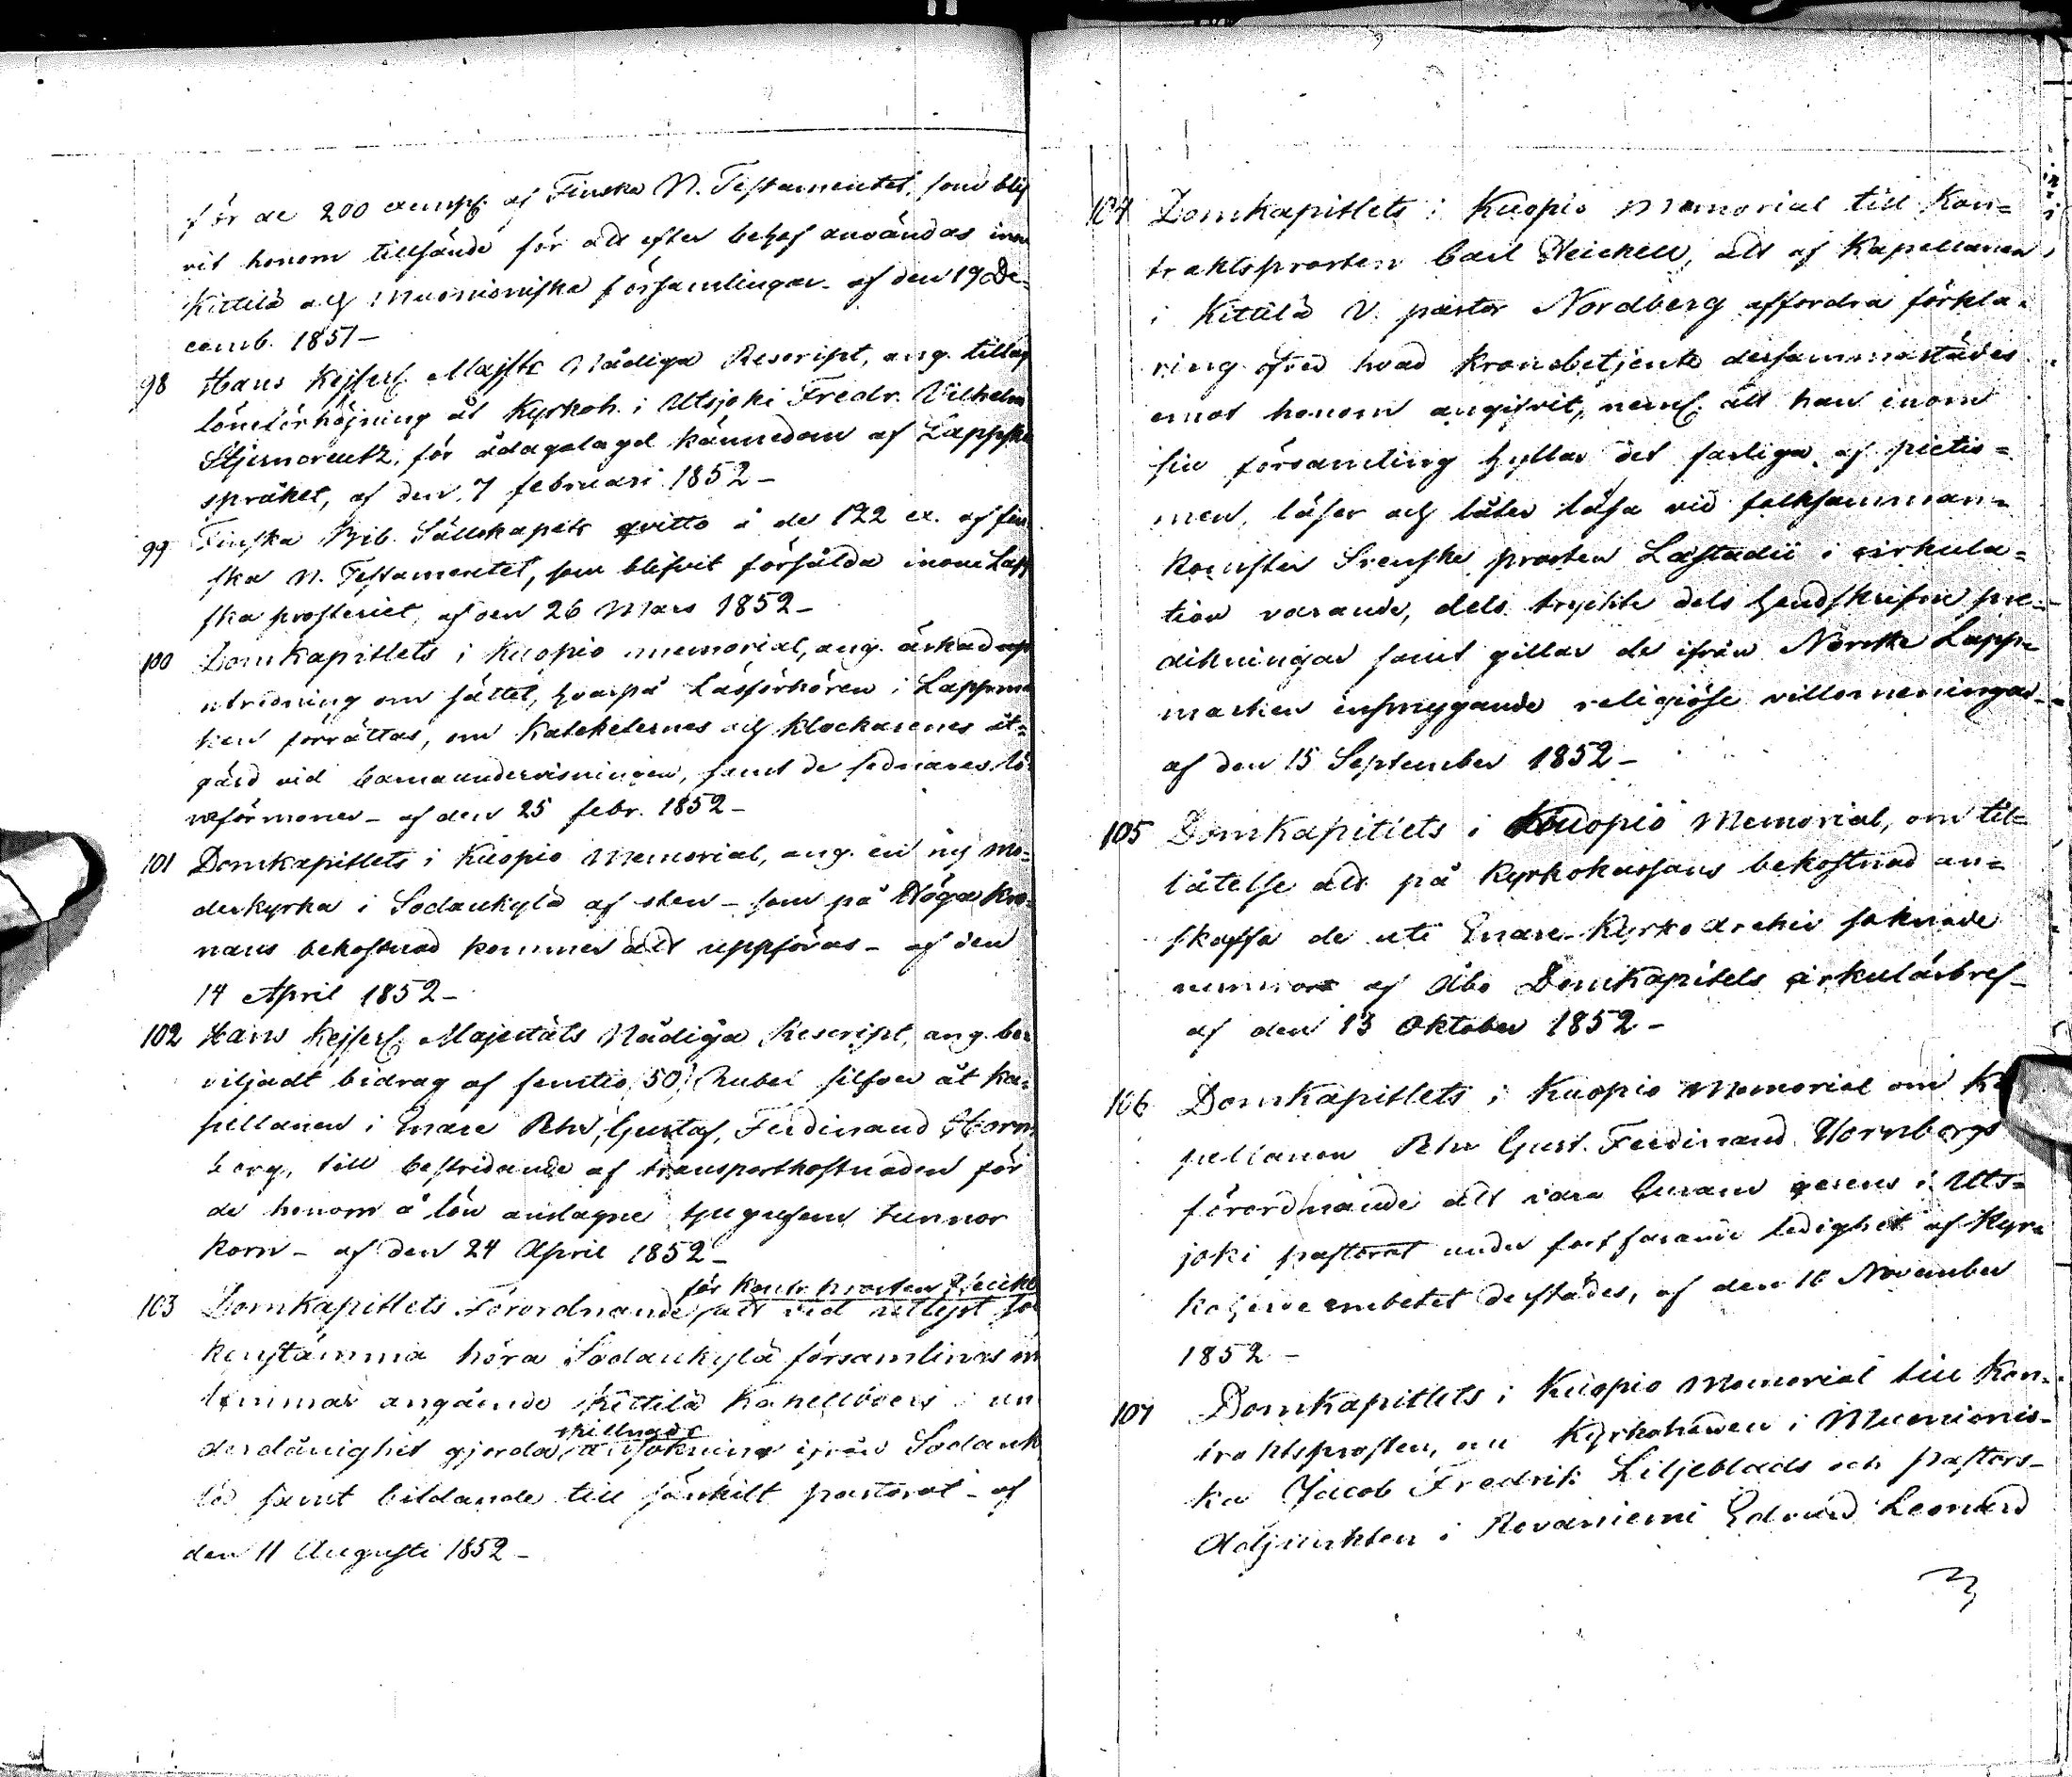 för de 200 exempl. af Finska N. Testamentet, som blif
vit honom tillsände för att efter behof användas inom
Kittilä och Muonioniska församlingar. af den 19 De-
cemb. 1851 -
98 Hans Kejserl. Majsts Nådiga Rescript, ang. tillagd
löneförhöjning åt Kyrkoh. i Utsjoki Fredr. Vilhelm
Stjerncreutz, för ådagalagd kännedom af Lappska
språket, af den 7 februari 1852 -
99 Finska Bib. Sällskapets qvitto å de 122 ex. af fin
ska N. Testamentet, som blifvit försålda inom Lapp
ska prosteriet, af den 26 Mars 1852 -
100 Domkapitlets i Kuopio memorial, ang. äskad upp
utredning om sättet, hvarpå Läsförhören i Lappmar
ken förrättas, om Kateketernes och Klockarenes åt-
gärd vid barnaundervisningen, samt de sednares lö-
neförmoner - af den 25 febr. 1852 -
101 Domkapitlets i Kuopio Memorial, ang. en ny mo-
derkyrka i Sodankylä af sten - som på Höga Kro-
nans bekostnad kommer att uppföras - af den
14 April 1852 -
102 Hans Kejserl. Majestäts Nådiga Rescript, ang. be-
viljadt bidrag af femtio, 50, Rubel silfver åt Ka-
pellanen i Enare Petr. Gustaf, Ferdinand Horn
berg, till bestridande af transportkostnaden för
de honom å lön anslagne tjugufem tunnor
korn - af den 24 April 1852 -
för Kontr. prosten Heickell
103 Domkapitlets Förordnande, att vid utlyst soc
kenstämma höra Sodankylä församlings m
lemmar angående Kittilä Kapellboers i un
skillnads
derdånighet gjorda ansökning ifrån Sodanky
lä samt bildande till särskilt pastorat - af
den 11 Augusti 1852 -
104 Domkapitlets i Kuopio Memorial till Kon-
traktsprosten Carl Heickell, att af Kapellanen
i Kittilä V. pastor Nordberg affordra förkla-
ring öfver hvad Kronobetjente dersammastädes
emot honom angifvit, neml. att han inom
sin församling hyllar det farliga af pietis-
men, läser och låter läsa vid folksamman-
komster Svenske prosten Læstadii i cirkula-
tion varande, dels tryckte dels handskrifne pre-
dikningar samt gillar de ifrån Norska Lapp-
marken insmygande religiöse villomeningar -
af den 15 September 1852 -
105 Domkapitlets i Kuopio Memorial, om til-
låtelse att på Kyrkokassans bekostnad an-
skaffa de uti Enare Kyrko archiv saknade
nummror af Åbo Domkapitels cirkulärbref -
af den 13 Oktober 1852 -
106 Domkapitlets i Kuopio Memorial om Ka
pellanen Petr Gust. Ferdinand Hornbergs
förordnande att vara Curam gerens i Uts-
joki pastorat under fortfarande ledighet af Kyr-
koherde embetet derstädes, af den 10 November
1852 -
107 Domkapitlets i Kuopio Memorial till Kon-
traktsprosten, om Kyrkoherden i Muonionis-
ka Jacob Fredrik Liljeblads och pastors-
Adjunkten i Rovaniemi Edvard Leonard